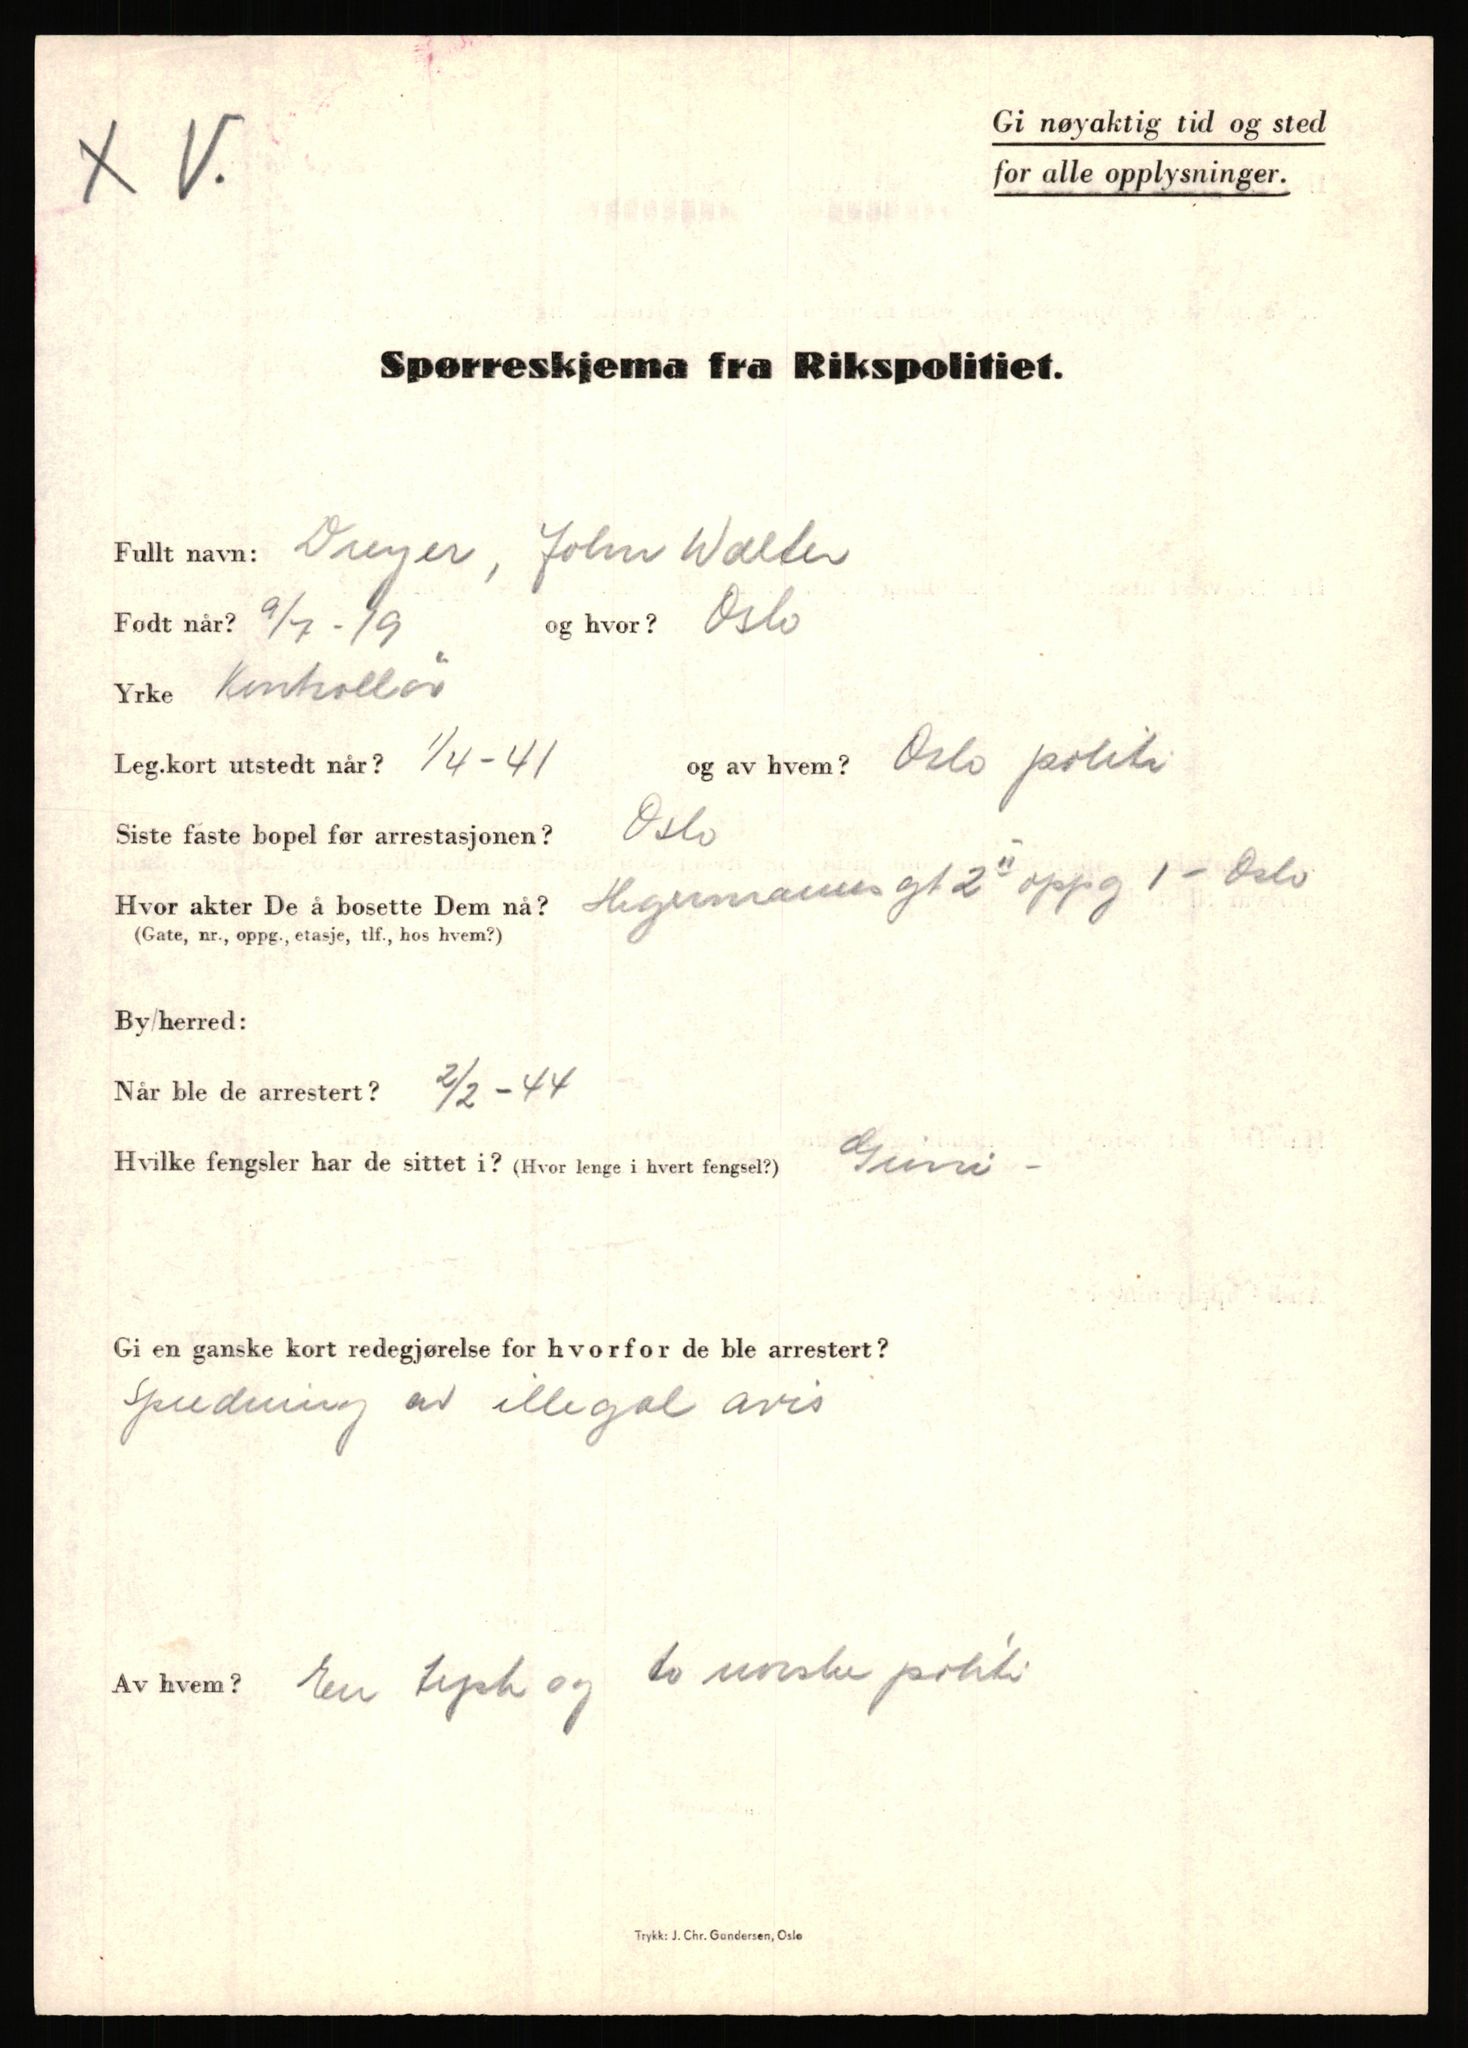 X V.
Gi nøyaktig tid og sted
for alle opplysninger.
Spørreskjema fra Rikspolitiet.
Fullt navn: Dreyer, John Walter
Født når? 9/7-19 og hvor? Oslo
Yrke Kontrollör
Leg.kort utstedt når? 1/4-41 og av hvem? Oslo politi
Siste faste bopel før arrestasjonen? Oslo
Hvor akter De å bosette Dem nå? Hegermanns gt 2 II oppg 1 - Oslo
(Gate, nr., oppg., etasje, tlf., hos hvem?)
By/herred:
Når ble de arrestert? 2/2-44
Hvilke fengsler har de sittet i? (Hvor lenge i hvert fengsel?) Grini -
Gi en ganske kort redegjørelse for hvorfor de ble arrestert?
Spredning av illegal avis
Av hvem? En tysk og to norske politi
Trykk: J. Chr. Gundersen, Oslo